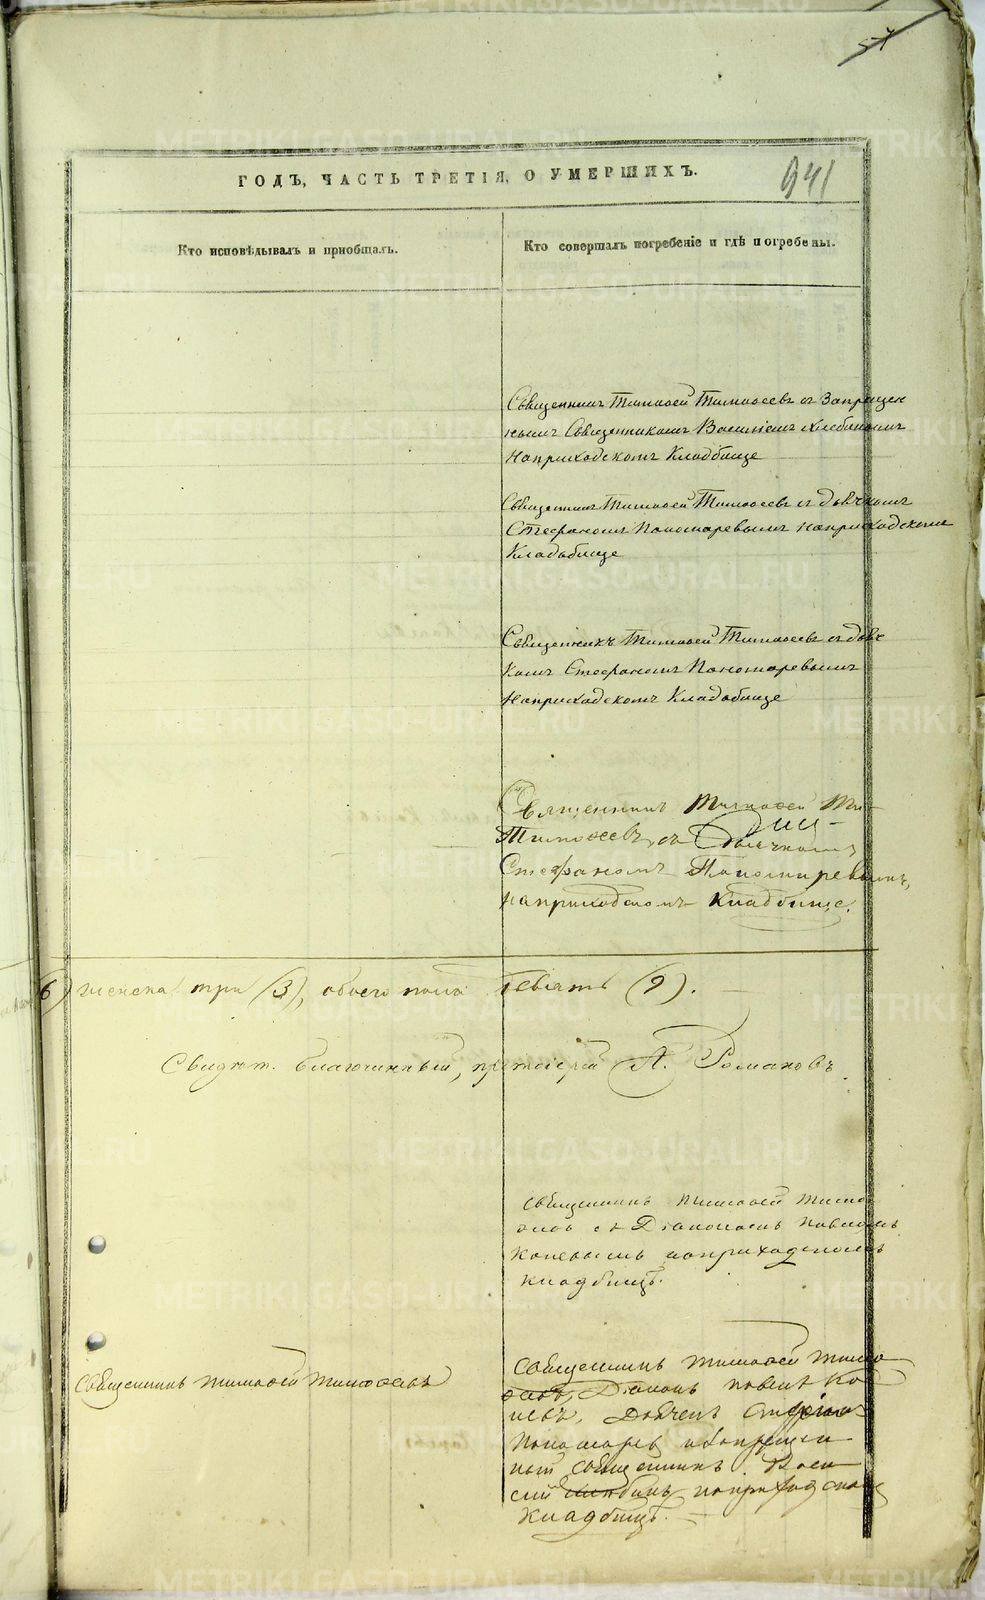 57
ГОДЪ, ЧАСТЬ ТРЕТІЯ, О УМЕРШИХЪ.
941
Кто исповѣдывалъ и приобщалъ.
Кто совершалъ погребеніе и гдѣ погребены.
Священникъ Тимофей Тимофеевъ съ Запрещен
нымъ Священникомъ Василіемъ Хлебинымъ
наприходскомъ Кладбище
Священникъ Тимофей Тимофеевъ съ дьячкомъ
Стефаномъ Пономаревымъ наприходскомъ
Кладьбище
Священникъ Тимофей Тимофеевъ съ дьяч
комъ Стефаномъ Пономаревымъ
Наприходскомъ Кладьбище
Священникъ Тимофей Ти-
Тимофеевъ, съ Дьячкомъ
Стефаномъ Пономаревымъ,
наприходскомъ Кладбище.
6) женска три (3), обоего пола девять (9).
Свидѣт. благочинный, протоіерей А. Романовъ
Священникъ Тимофей Тимо
съ Діакономъ Павломъ
Коневымъ наприходскомъ
кладбищѣ.
Священникъ Тимофей Тимофеевъ
Священникъ Тимофей Тимо
Діаконъ Павелъ Ко
невъ, Дьячекъ Стефанъ
Пономаревъ и Запрещен
ный Священникъ Васи
лій Хлебинъ наприходскомъ
кладбищѣ.
METRIKI.GASO-URAL.RU